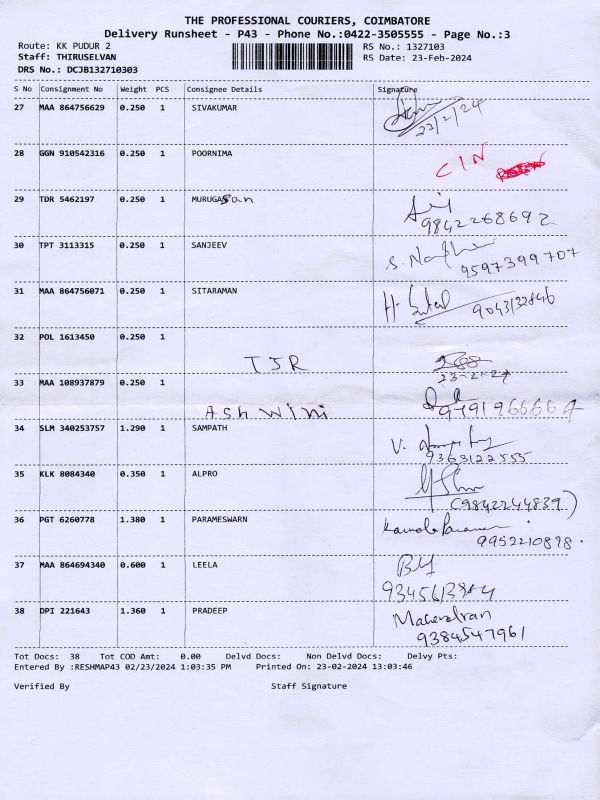 THE PROFESSIONAL COURIERS, COIMBATORE
Delivery Runsheet - P43 - Phone No.:0422-3505555 - Page No.:3
Route: KK PUDUR 2 RS No.: 1327103
Staff: THIRUSELVAN RS Date: 23-Feb-2024
DRS No.: DCJB132710303
S No Consignment No Weight PCS Consignee Details Signature
27 MAA 864756629 0.250 1 SIVAKUMAR
22/2/24
28 GGN 910542316 0.250 1 POORNIMA
CIN
29 TDR 5462197 0.250 1 MURUGASan
9842268692
30 TPT 3113315 0.250 1 SANJEEV
9597399707
31 MAA 864756071 0.250 1 SITARAMAN
32 POL 1613450 0.250 1
TJR
23-2-24
33 MAA 108937879 0.250 1
ASHWINI
34 SLM 340253757 1.290 1 SAMPATH
9363122555
35 KLK 8084340 0.350 1 ALPRO
(9842244839)
36 PGT 6260778 1.380 1 PARAMESWARN
9952210898.
37 MAA 864694340 0.600 1 LEELA
38 DPI 221643 1.360 1 PRADEEP
Mahendran
9384547961
Tot Docs: 38 Tot COD Amt: 0.00 Delvd Docs: Non Delvd Docs: Delvy Pts:
Entered By :RESHMAP43 02/23/2024 1:03:35 PM Printed On: 23-02-2024 13:03:46
Verified By Staff Signature